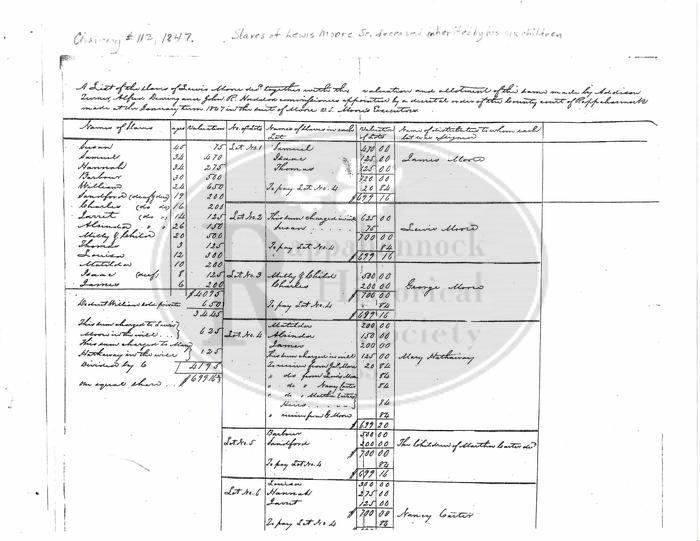 Chancery #112, 1847.
Slaves of Lewis Moore Sr. deceased inherited by his six children
A List of the slaves of Lewis Moore decd together with the valuation and allotment of the same made by Addison
Turner, Alfred Dearing and John R. Haddox commissioners appointed by a decretal order of the County court of Rappahannock
made at the January term 1847 in the suit of Moore vs Moores Executors.
Names of Slaves ages Valuation
Susan 45 75
Samuel 34 470
Hannah 34 275
Barbour 30 500
William 24 650
Sandford (deaf & du) 19 200
Charles (do do) 16 200
Jarret (do 14 125
Alsinda 26 150
Milly & Child 20 500
Thomas 3 125
Louisa 12 300
Matilda 10 200
Isaac (deaf) 8 125
James 6 200
$4095
Deduct William sold privte 650
3445
This sum charged to Lewis
Moore in the will 625
This sum charged to Mary
Hathaway in the will 125
Divided by 6 4195
One equal share $699.16⅔
No. of Lots Names of Slaves in each Lot Valuation of Lots Name of distributees to whom each lot was assigned
Lot No. 1 Samuel 470 00
Isaac 125 00 James Moore
Thomas 125 00
720 00
To pay Lot No. 4 20 84
$699 16
Lot No. 2 This sum charged in will 625 00
Susan 75 Lewis Moore
700 00
To pay Lot No. 4 84
$699 16
Lot No. 3 Milly & Child 500 00
Charles 200 00 George Moore
$700 00
To pay Lot No. 4 84
$699 16
Lot No. 4 Matilda 200 00
Alsinda 150 00
James 200 00
This sum charged in will 125 00 Mary Hathaway
To receive from Jas. Moore 20 84
" do from Lewis Moore 84
" do " Nancy Carter 84
" do " Martha Carters
Heirs 84
" receive from G Moore 84
$699 20
Lot No. 5 Barbour 500 00
Sandford 200 00 The Children of Martha Carter decd
$700 00
To pay Lot No. 4 84
$699 16
Lot No. 6 Louisa 300 00
Hannah 275 00
Jarret 125 00
$700 00 Nancy Carter
To pay Lot No. 4 84
Rappahannock
Historical
Society